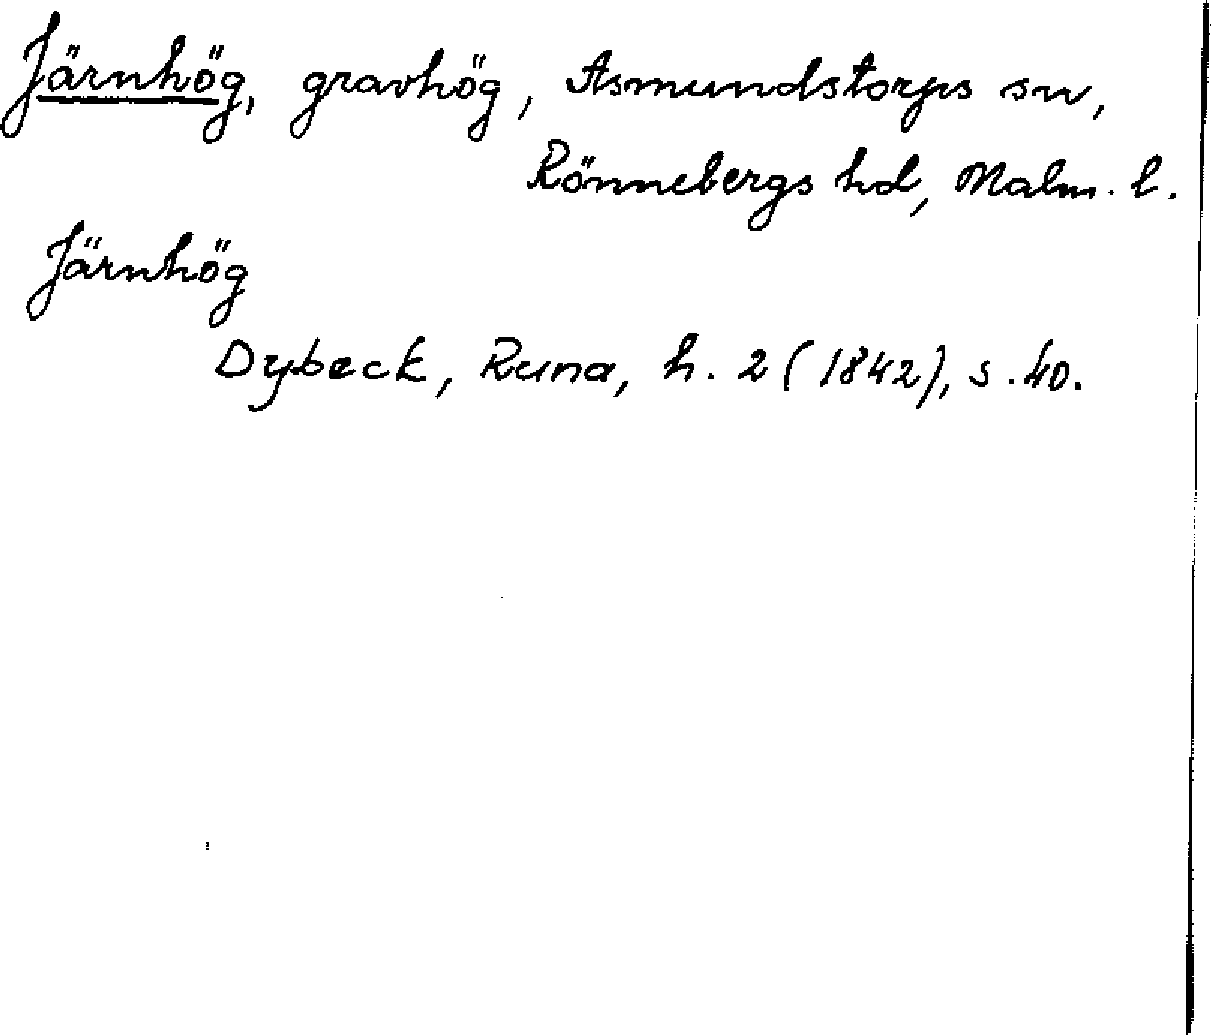 Järnhög, gravhög, Asmundstorps sn,
Rönnebergs hd, Malm. l.
Järnhög
Dybeck, Runa, h. 2 (1842), s. 40.